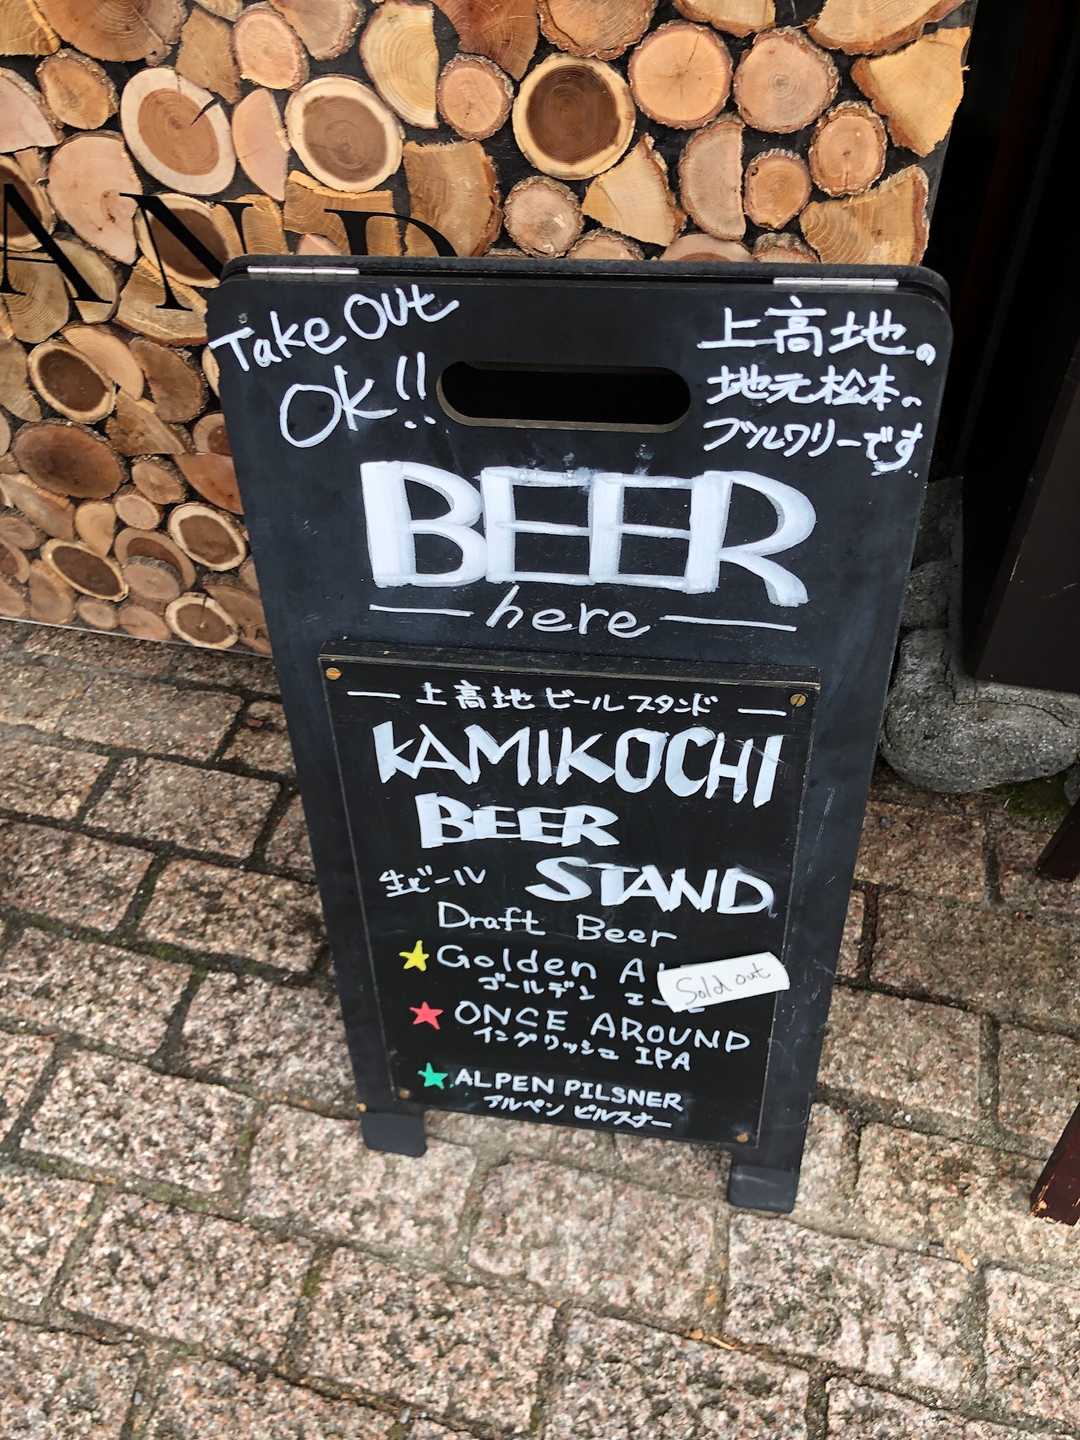 AND
Take Out
OK!!
上高地の
地元松本の
ブルワリーです
BEER
here
上高地 ビールスタンド
KAMIKOCHI
BEER
生ビール
STAND
Draft Beer
Golden
Sold out
ゴールデン
ONCE AROUND
イングリッシュ IPA
ALPEN PILSNER
アルペン ピルスナー